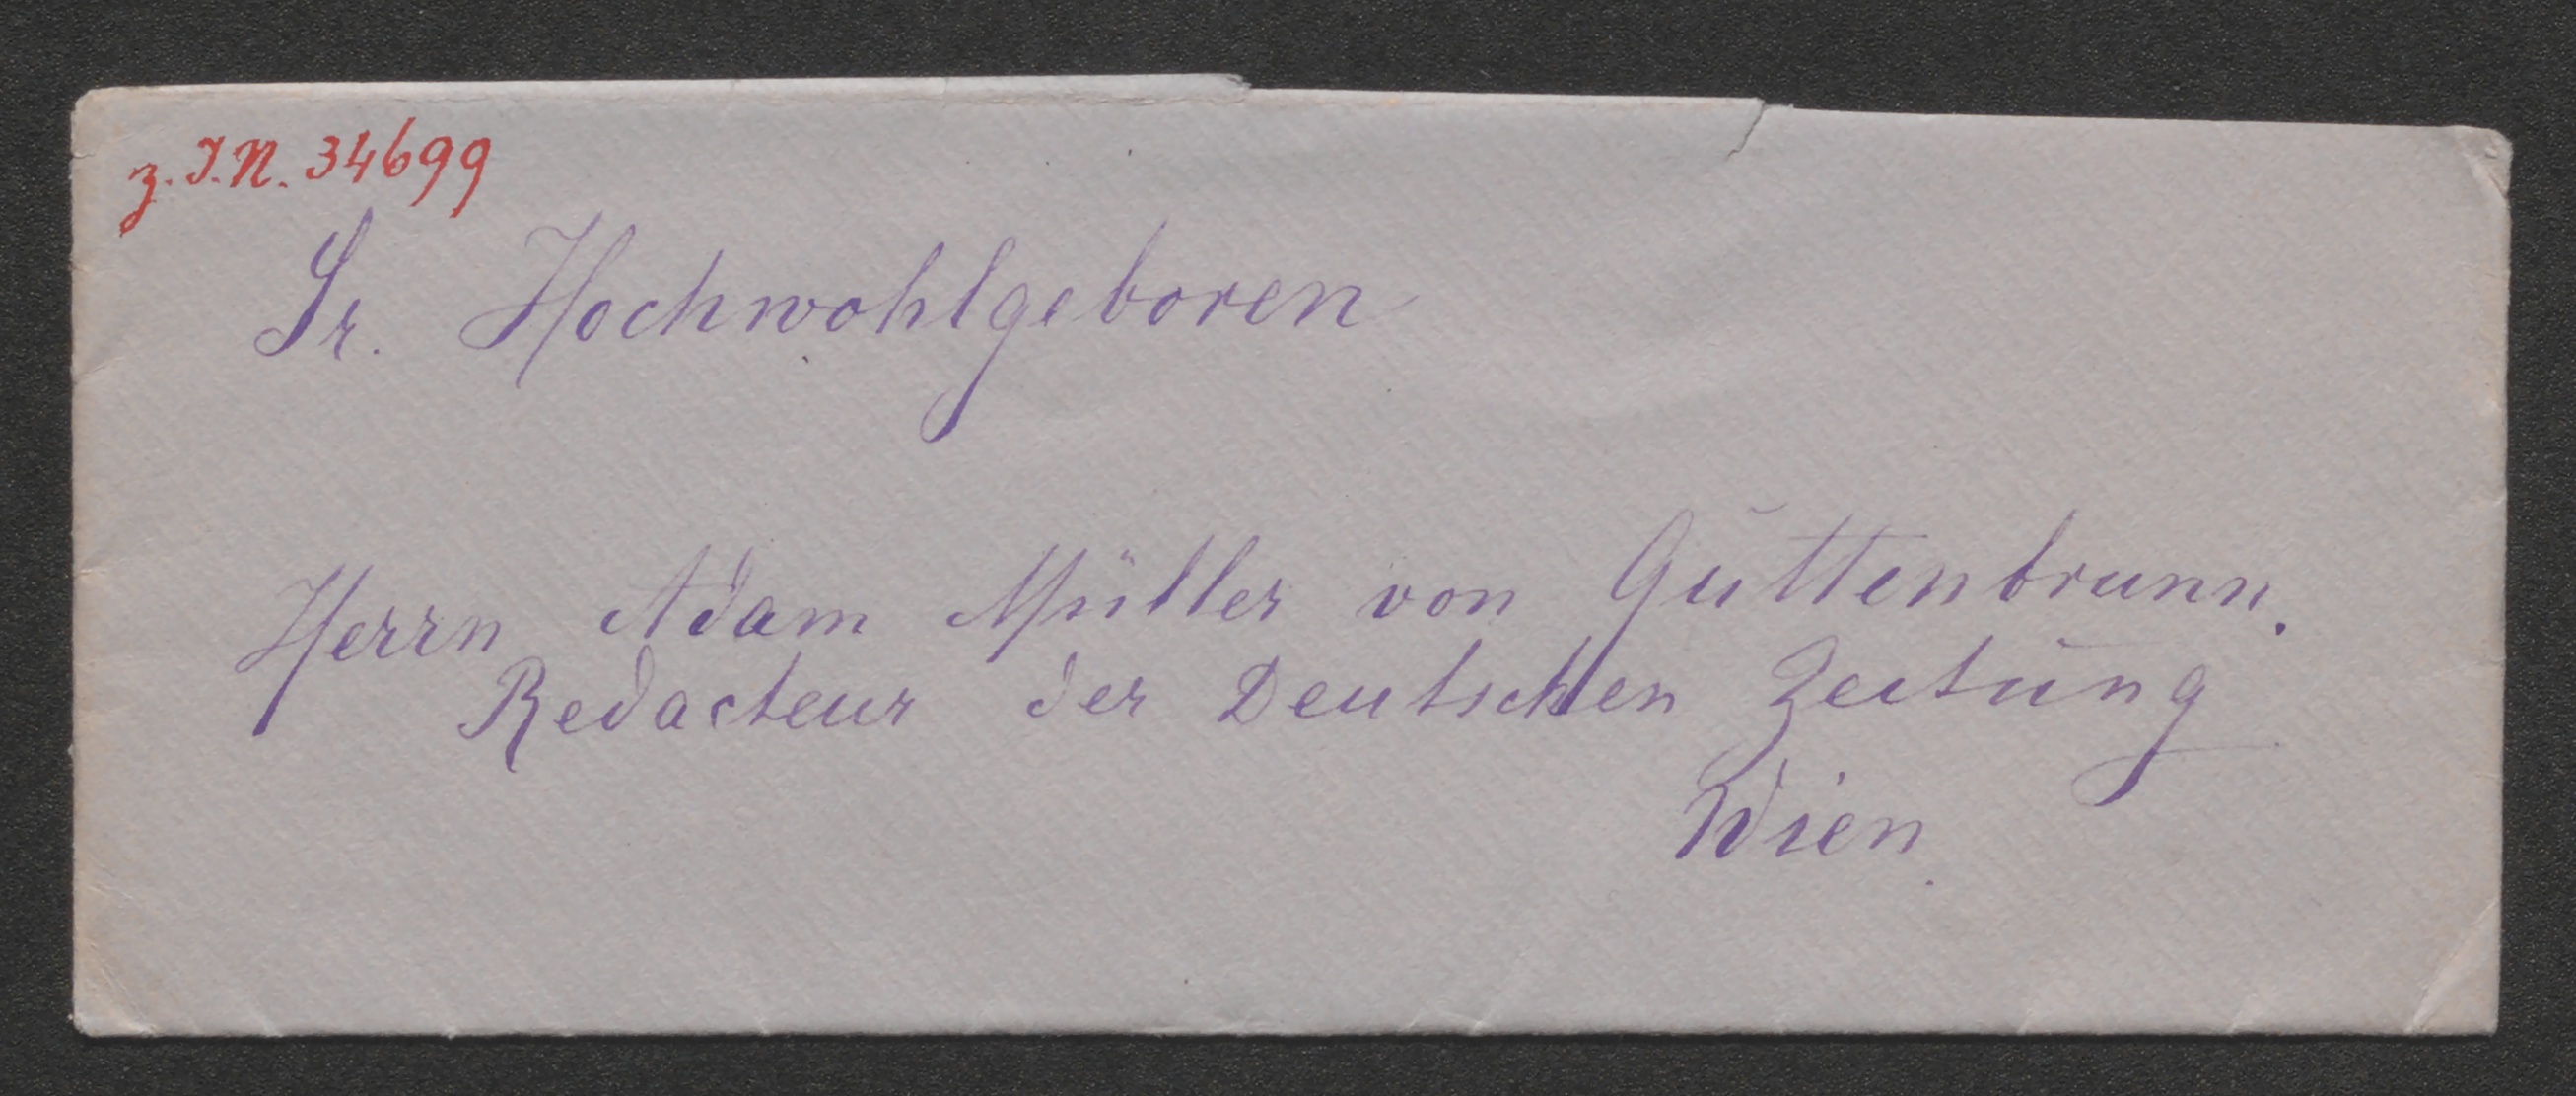 z. I. N. 34699
Sr. Hochwohlgeboren
Herrn Adam Müller von Guttenbrunn.
Redacteur der Deutschen Zeitung
Wien.